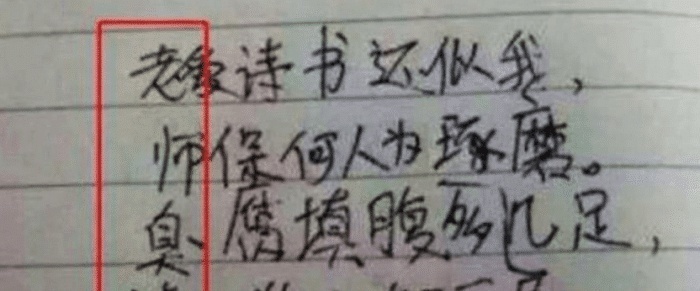 老爱诗书还似我，
师保何人为琢磨。
臭腐填腹多几足，